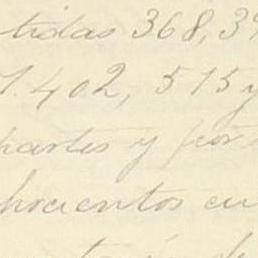 tidas 368,39
1.402, 515 y
partes y por
hocientos cu